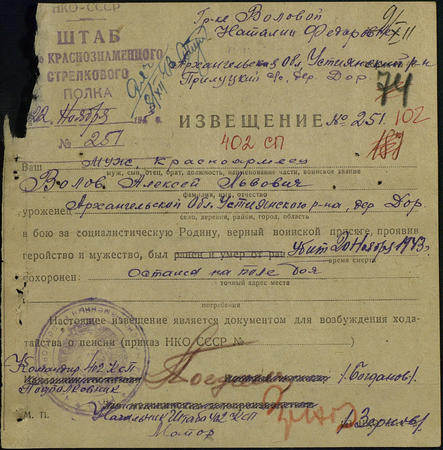 НКО-СССР
ШТАБ
КРАСНОЗНАМЕННОГО
СТРЕЛКОВОГО
ПОЛКА
22 Ноября 194
№ 251
Гр-ке Воловой
Наталии Федоровне
Архангельская Обл, Устьянский р-н
с/с, дер. Дор
74
ИЗВЕЩЕНИЕ № 251. 102
402 СП
Ваш муж, красноармеец
муж, сын, брат, должность, наименование части, воинское звание
Волов Алексей Львович
фамилия, имя, отчество
уроженец Архангельской Обл. Устьянского р-на, дер. Дор
село, деревня, район, город, область
в бою за социалистическую Родину, верный воинской присяге, проявив
геройство и мужество, был ранен и умер от ран убит 20 ноября 1943.
время смерти
похоронен: Остался на поле боя
точный адрес места
погребения
Настоящее извещение является документом для возбуждения хода-
тайства о пенсии (приказ НКО СССР №
Командир 402 КСП
Подполковник /Богданов/.
Начальник Штаба 402 КСП
М. П. Майор /Зернов/